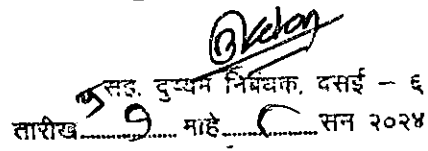 सह. दुय्यम निबंधक, वसई – ६
तारीख......९......माहे......८......सन २०२४